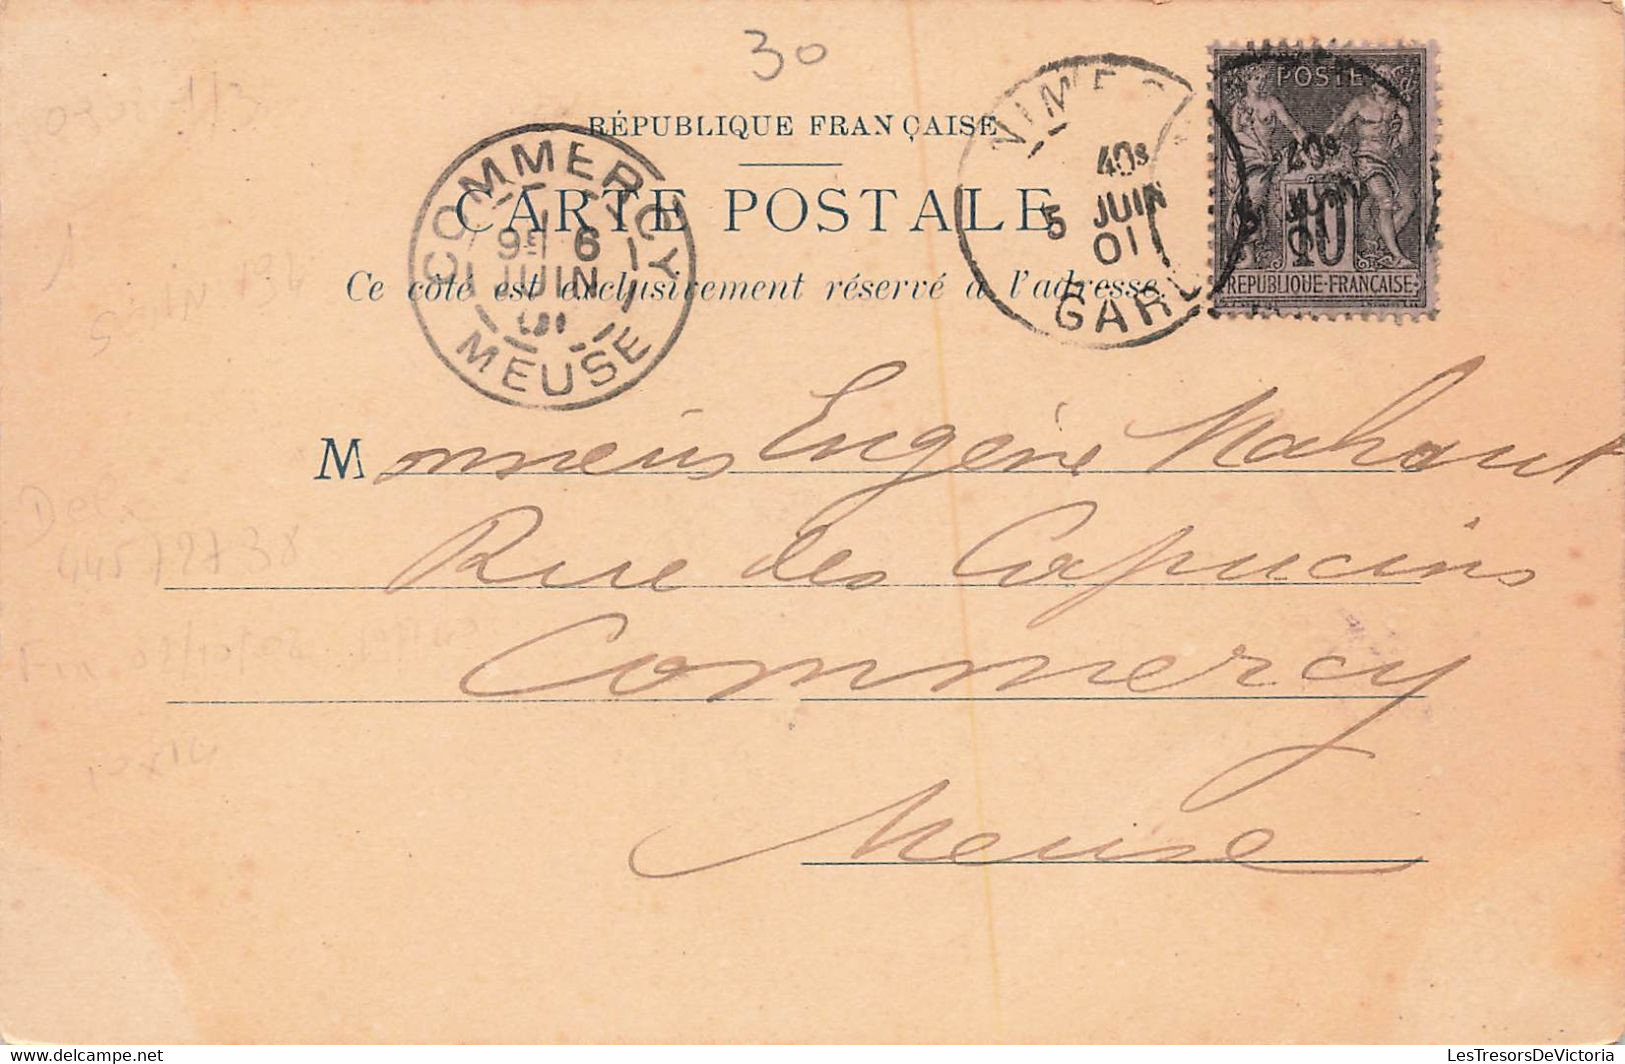 30
RÉPUBLIQUE FRANÇAISE
CARTE POSTALE
Ce côté est exclusivement réservé à l'adresse.
COMMERCY
6
JUIN
MEUSE
NIMES
5 JUIN
01
GARD
POSTE
10
REPUBLIQUE-FRANÇAISE
Monsieur Eugène Mahaut
Rue des Capucins
Commercy
Meuse
Delc
445/2738
Fin
www.delcampe.net
LesTresorsDeVictoria